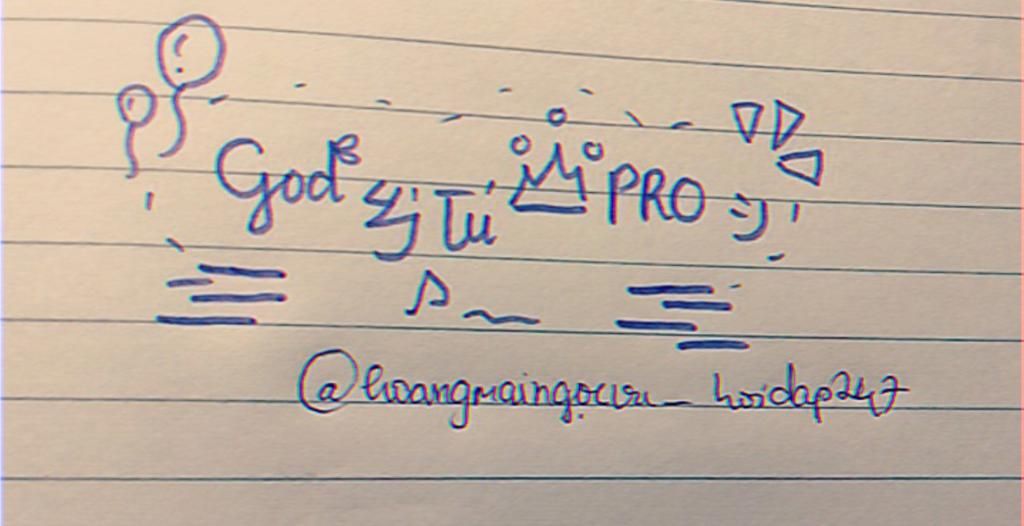 God PRO =)
@hoangmaingocvu_hoidap247